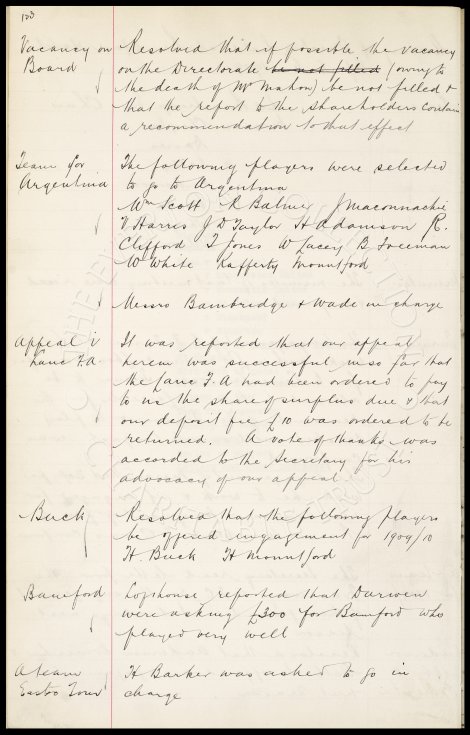 123
Vacancy on
Board
Resolved that if possible the vacancy
on the Directorate be not filled (owing to
the death of Mr Mahon) be not filled &
that the report to the shareholders contain
a recommendation to that effect
Team for
Argentina
The following players were selected
to go to Argentina
Wm Scott R Balmer J Maconnachie
V Harris J D Taylor H Adamson R.
Clifford T Jones W Lacey B Freeman
W White Rafferty Mountford
Messrs Bainbridge & Wade in charge
Appeal v
Lanc F.A
It was reported that our appeal
herein was successful in so far that
the Lanc F.A had been ordered to pay
to us the share of surplus due & that
our deposit fee £10 was ordered to be
returned. A vote of thanks was
accorded to the Secretary for his
advocacy of our appeal
Buck
Resolved that the following players
be offered engagement for 1909/10
H. Buck H Mountford
Bamford
Lofthouse reported that Darwen
were asking £300 for Bamford who
played very well
A team
Easter Tour
H Barker was asked to go in
charge